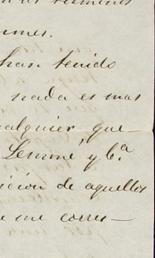 umes.
han tenido
nada es mas
ualquier que
Lemme, y ba
ición de aquellos
e me corres-